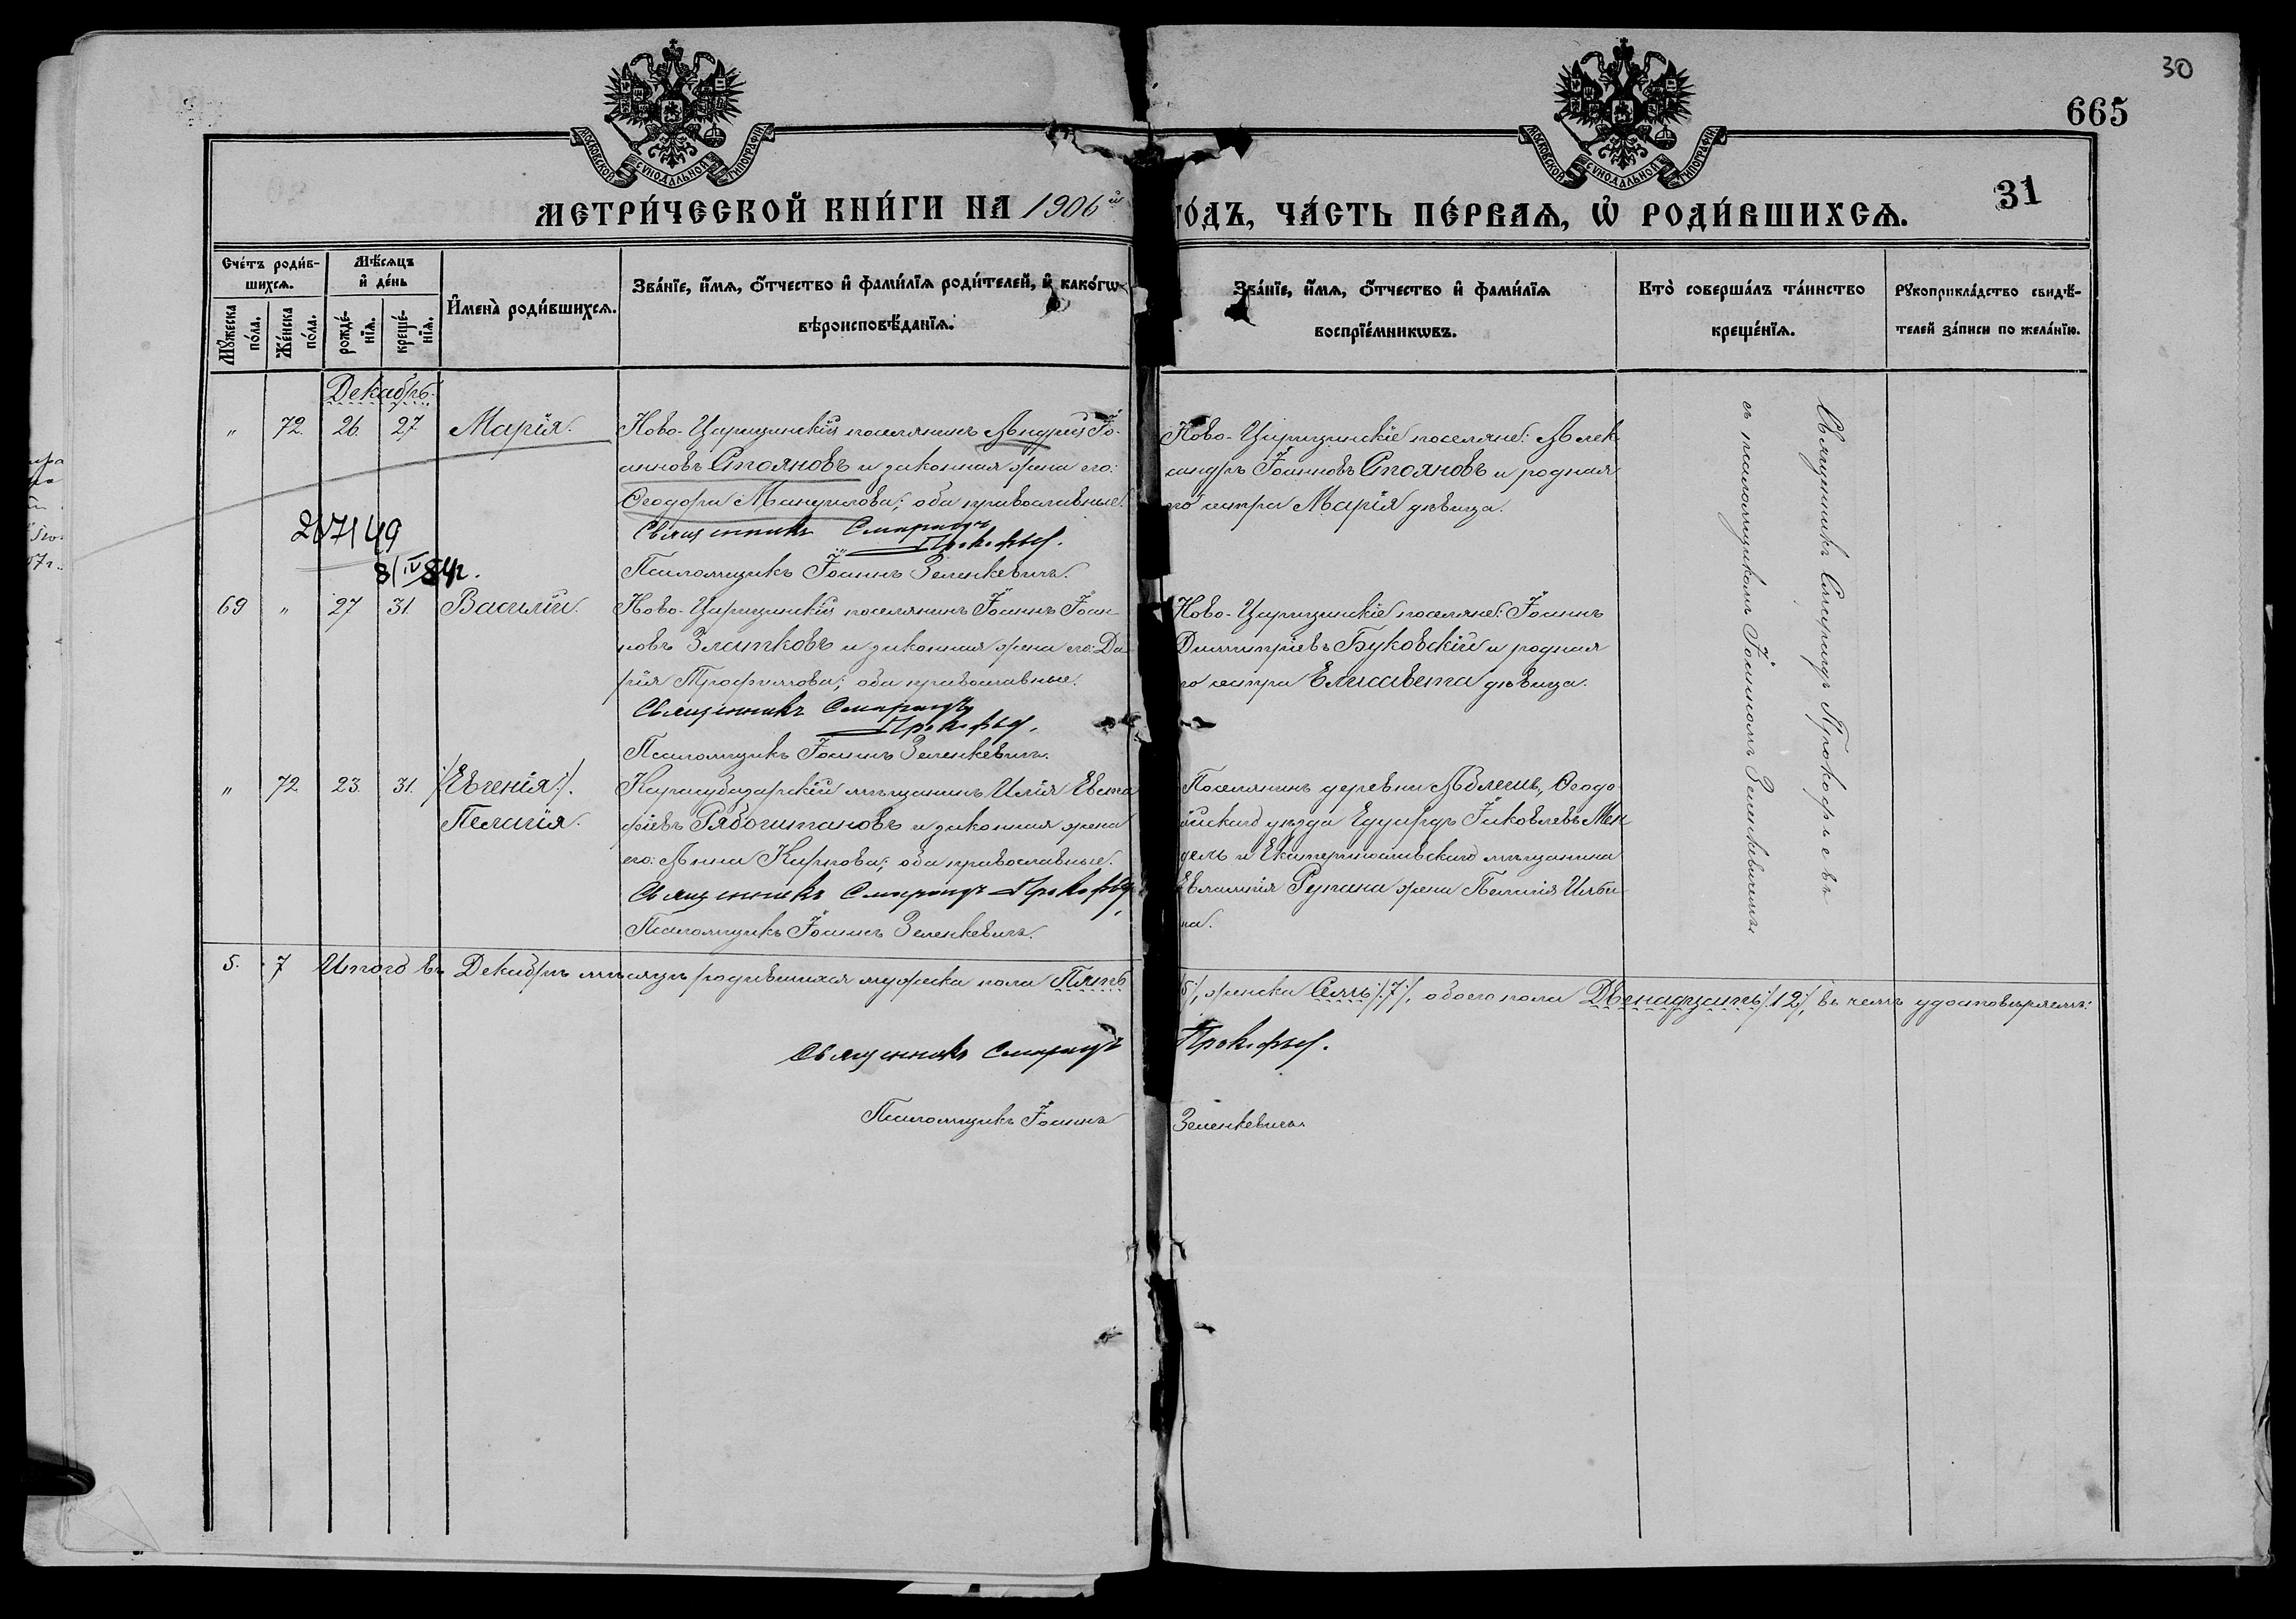 30
665
31
МОСКОВСКОЙ СѴНОДАЛЬНОЙ ТИПОГРАФІИ
МОСКОВСКОЙ СѴНОДАЛЬНОЙ ТИПОГРАФІИ
МЕТРИ́ЧЕСКОЙ КНИ́ГИ НА 1906й ГО́ДЪ, ЧА́СТЬ ПЕ́РВАѦ, Ѡ҆ РОДИ́ВШИХСѦ.
Сче́тъ роди́вшихсѧ.
Мꙋ́жеска по́ла.
Же́нска по́ла.
Мѣ́сѧцъ и҆ де́нь
рожде́нїѧ.
креще́нїѧ.
И҆мена̀ роди́вшихсѧ.
Зва́нїе, и҆́мѧ, ѻ҆́тчество и҆ фами́лїѧ роди́телей, и҆ како́гѡ
вѣроисповѣ́данїѧ.
Зва́нїе, и҆́мѧ, ѻ҆́тчество и҆ фами́лїѧ
воспрїе́мникѡвъ.
Кто̀ соверша́лъ та́инство
креще́нїѧ.
Рꙋкоприкла́дство свидѣ́-
телей за́писи по жела́нїю.
Декабрь.
" 72. 26. 27. Марія.
Ново-Царицинскій поселянинъ Андрей Іо-
анновъ Стояновъ и законная жена его:
Ѳеодора Мануилова; оба православные.
Священникъ Смарагдъ
Прокофьев.
Псаломщикъ Іоаннъ Зеленкевичъ.
Ново-Царицинскіе поселяне: Алек-
сандръ Іоанновъ Стояновъ и родная
его сестра Марія дѣвица.
Священникъ Смарагдъ Прокофьевъ
съ псаломщикомъ Іоанномъ Зеленкевичемъ.
217149
8/IV 84г.
69 " 27 31. Василій.
Ново-Царицинскій поселянинъ Іоаннъ Іоан-
новъ Златковъ и законная жена его: Да-
рія Трофимова; оба православные.
Священникъ Смарагдъ
Прокофьев.
Псаломщикъ Іоаннъ Зеленкевичъ.
Ново-Царицинскіе поселяне: Іоаннъ
Димитріевъ Буковскій и родная
его сестра Елисавета дѣвица.
" 72 23. 31. /:Евгенія:/.
Пелагія.
Карасубазарскій мѣщанинъ Илія Евста-
фіевъ Рябоштановъ и законная жена
его: Анна Карпова; оба православные.
Священникъ Смарагдъ Прокофьев
Псаломщикъ Іоаннъ Зеленкевичъ.
Поселянинъ деревни Аблешъ, Ѳеодо-
сійскаго уѣзда Едуардъ Іаковлевъ Мен-
дель и Екатеринославскаго мѣщанина
Евлампія Репана жена Пелагія Ильи-
на.
5. 7 Итого въ Декабрѣ мѣсяцѣ родившихся мужеска пола Пять /:5:/, женска Семь /:7:/, обоего пола Двенадцать /:12:/, въ чемъ удостовѣряемъ:
Священникъ Смарагдъ Прокофьев.
Псаломщикъ Іоаннъ Зеленкевичъ.